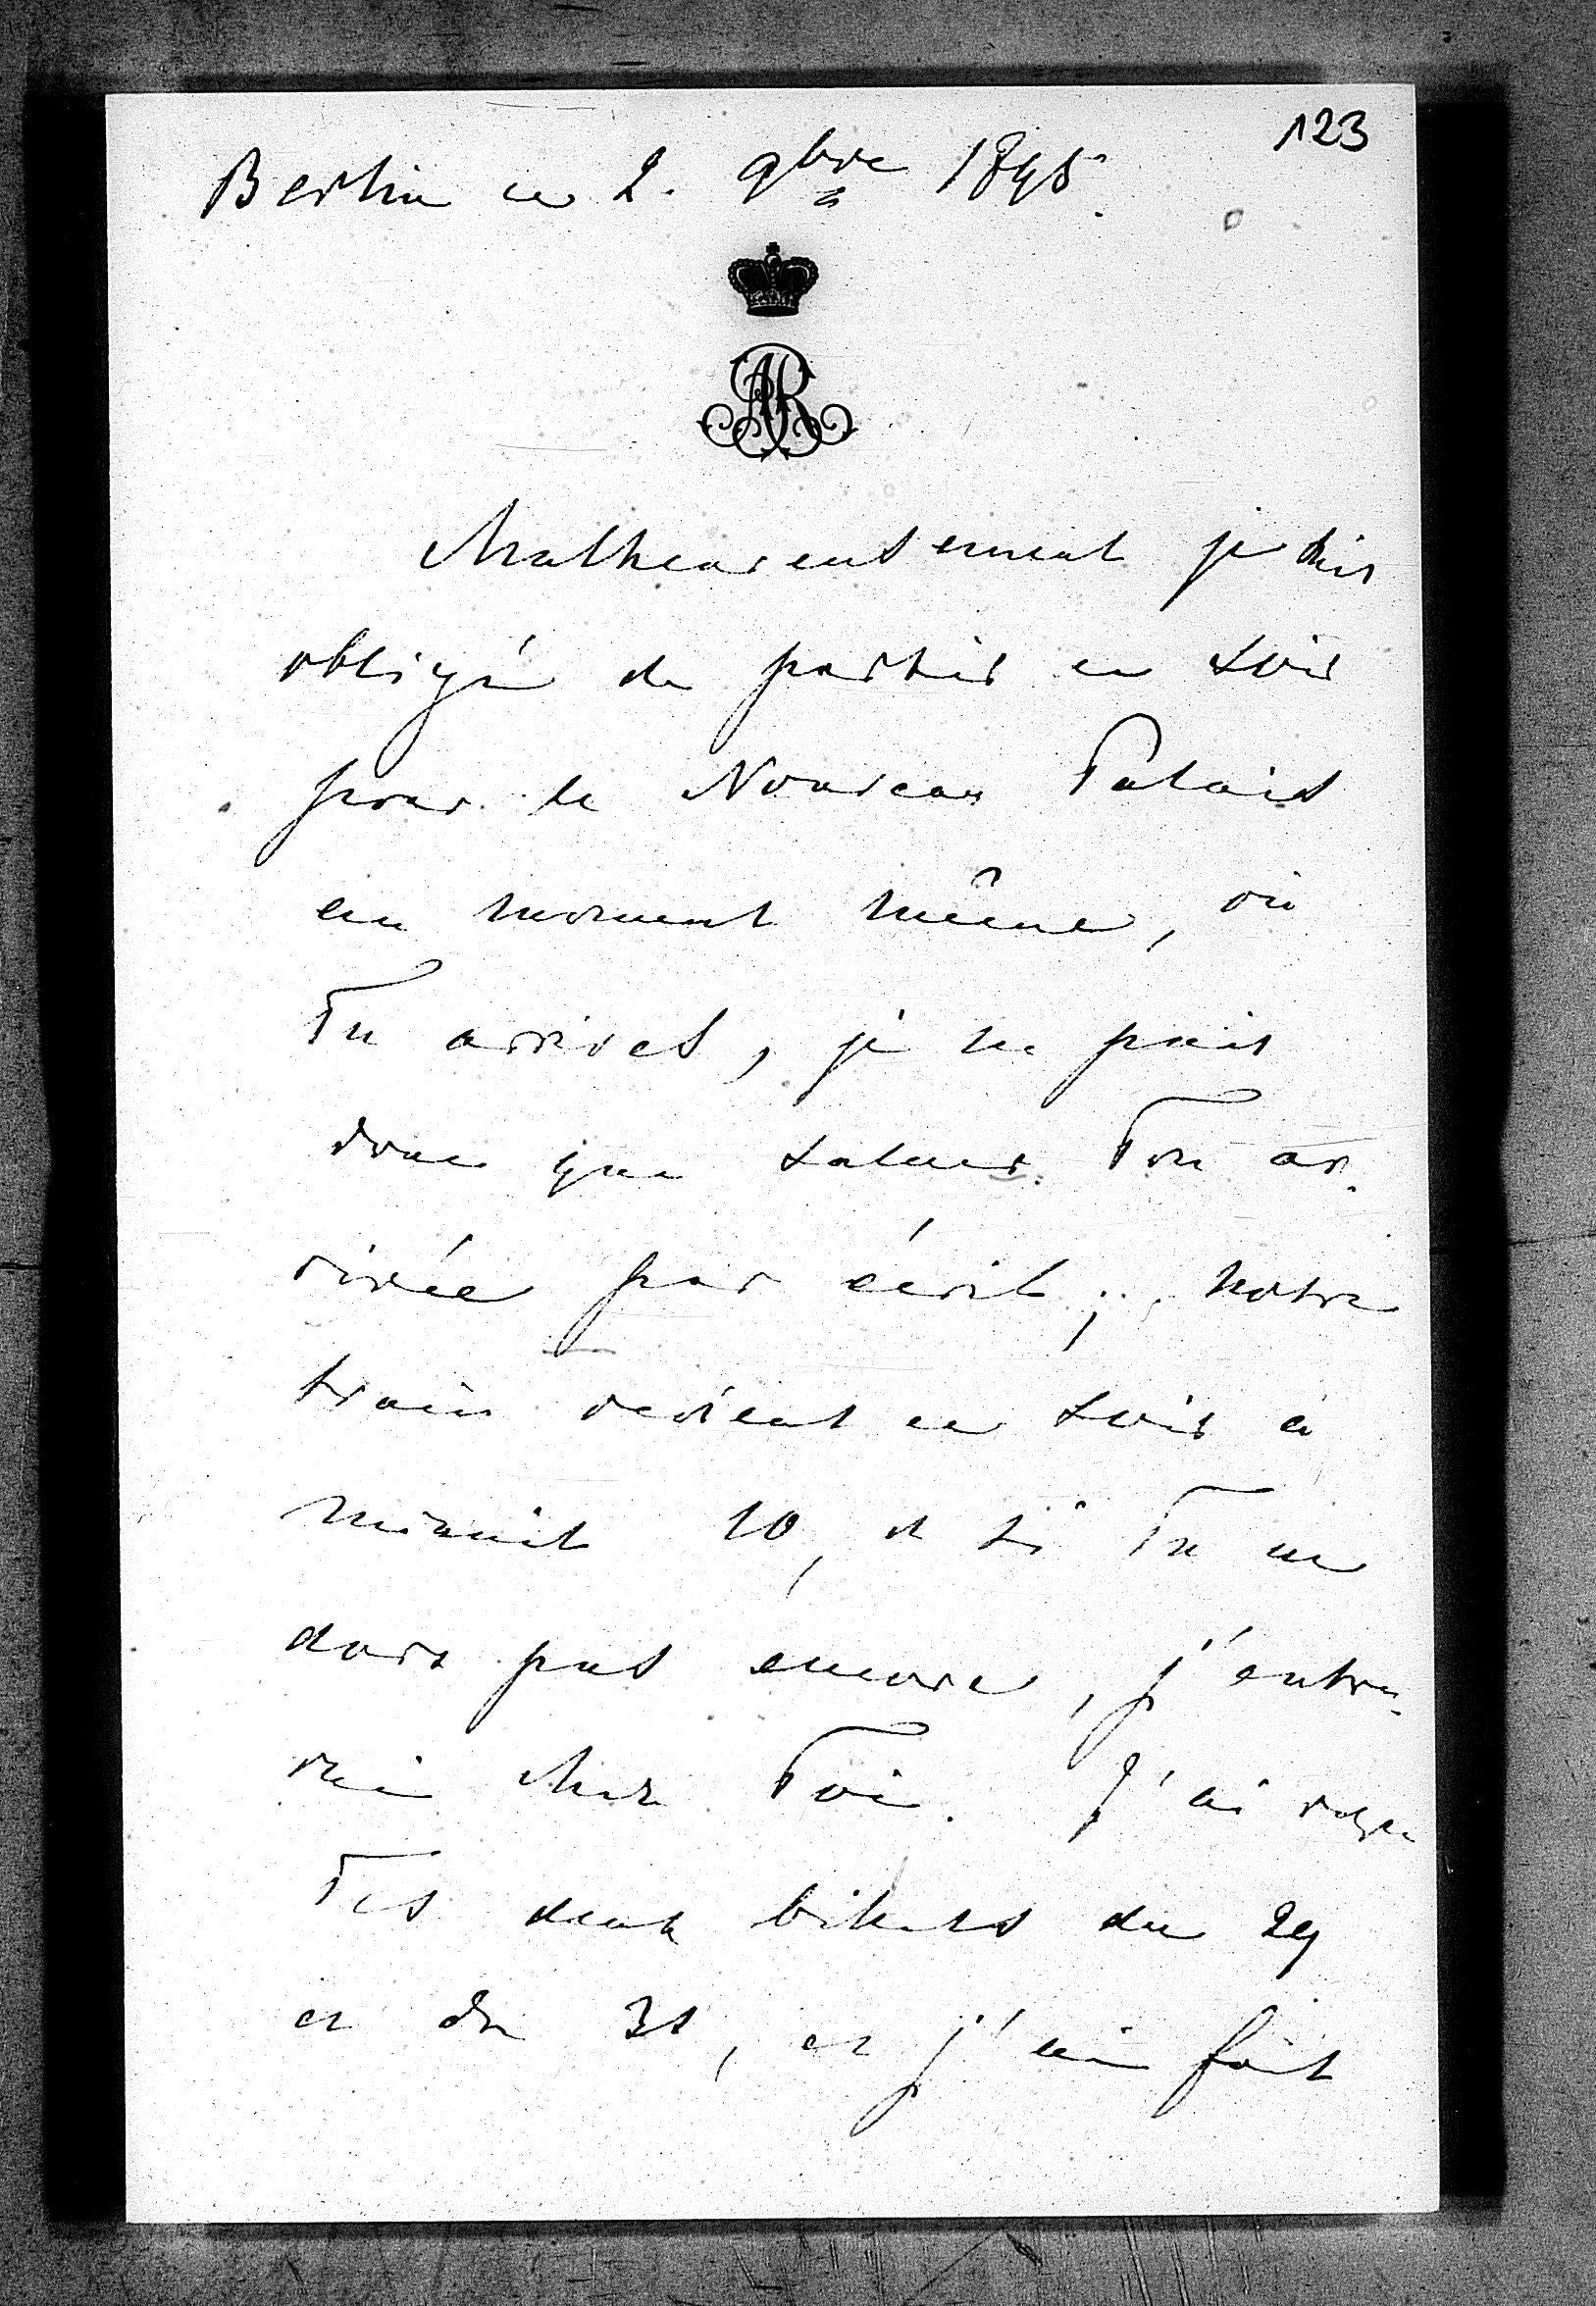 123
Berlin ce 2. 9bre 1895.
AR
Malheureusement je suis
obligé de partir ce soir
pour le Nouveau Palais
au moment même, où
Tu arrives, je ne puis
donc que saluer Ton ar-
rivée par écrit; notre
train revient ce soir à
minuit 10, et si Tu ne
dors pas encore, j'entre-
rai chez Toi. J'ai reçu
Tes deux billets du 29
et du 31, et j'ai fait